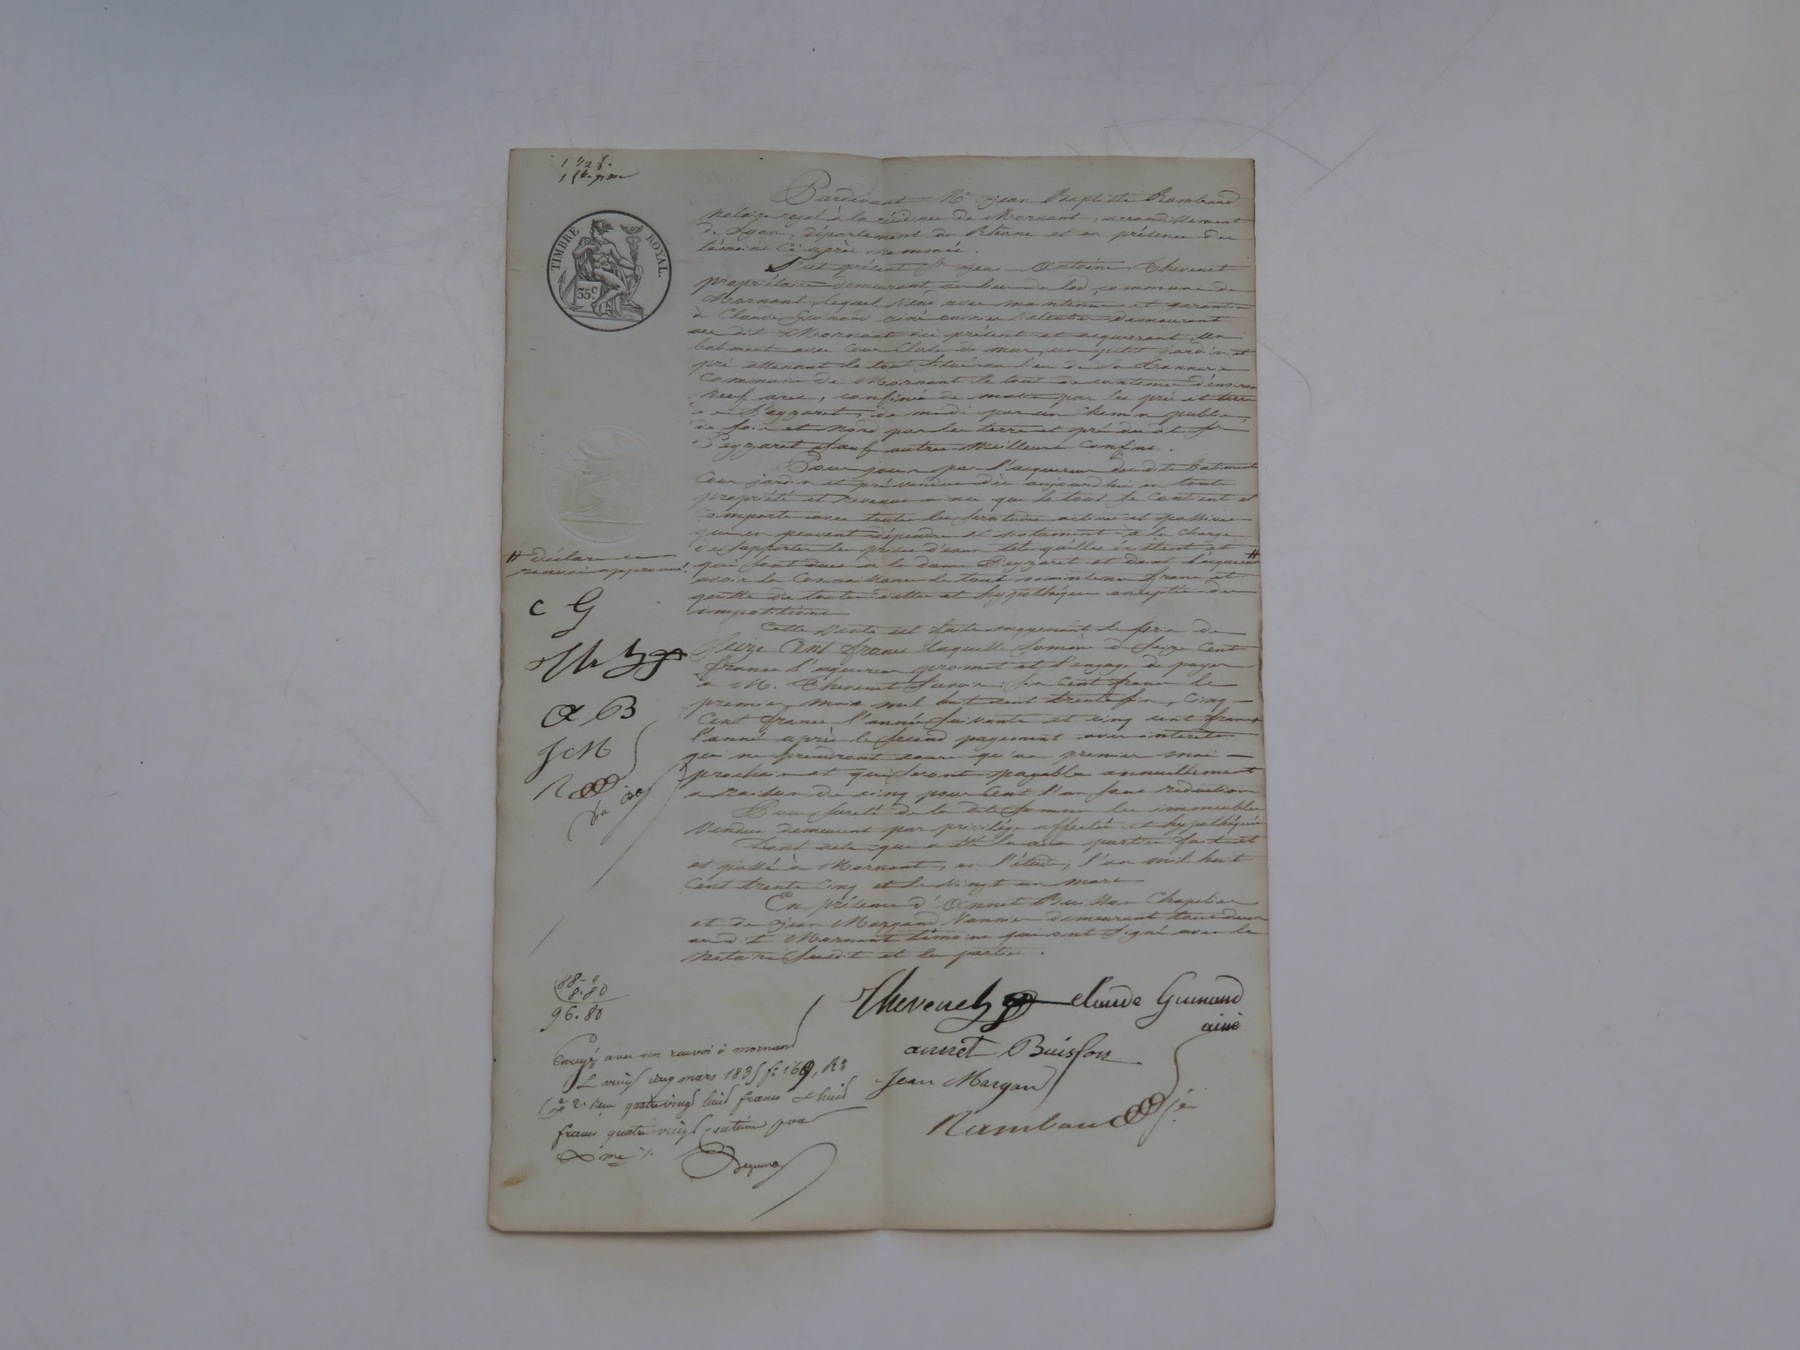 1 1/2 f.
TIMBRE ROYAL.
35c
Pardevant Me Jean Baptiste Rambaud
Notaire royal à la résidence de Mornant, arrondissement
de Lyon, département du Rhône et en présence des
témoins ci après nommés.
Fut présent Sr Jean Antoine Thevenet
propriétaire demeurant au lieu du commune de
Mornant, lequel vend avec maintenue et garantie
à Claude Guinand ainé ouvrier demeurant
au dit Mornant ici présent et acquerant, un
batiment avec cour close de mur, un petit jardin et
pré attenant le tout situé au lieu de la
commune de Mornant le tout de contenue d'environ
neuf ares, confiné de matin par les pré et terre
de Peyzaret, de midi par un chemin public,
de soir et nord par les terre et pré du dit Sr
Peyzaret sauf autres meilleurs confins.
Pour jouir par l'acquereur du dit batiment
cour jardin et pré vendus dès aujourdhui en toute
propriété et revenus ainsi que le tout se contient et
comporte avec toutes les servitudes actives et passives
qui en peuvent dépendre et notament à la charge
de supporter les prises d'eau tel qu'elles éxistent et
qui sont dues à la dame Peyzaret et dont l'acquereur #
# déclare ce
renvoi approuvé.
avoir la connaissance le tout maintenu franc et
quitte de toutes dettes et hypothèques exceptés des
impositions
Cette vente est faite moyenant le prix de
Seize cent francs laquelle somme de seize cent
francs l'aquereur promet et s'engage de payer
à M. Thevenet savoir: six cent francs le
premier mai mil huit cent trente six, cinq
cent francs l'année suivante et cinq cent francs
l'anné après le second payement avec interets
qui ne prendront cour qu'au premier mai
prochain et qui seront payable annuellement
à raison de cinq pour cent l'an sans réduction
Pour sureté de la dite somme les immeubles
vendus demeurent par privilége affectés et hypothéqués
Dont acte qui a été lu aux parties fait et
et passé à Mornant, en l'étude, l'an mil huit
cent trente cinq et le vingt un mars
En présence d'Annet Buisson Chapelier
et de Jean Margand Vannier demeurant tous deux
au dit Mornant témoins qui ont signé avec le
notaire susdit et les parties.
C G
Th
A B
J M
R
Thevenet Claude Guinand
ainé
annet Buisson
Jean Margand
Rambaud
88-"
8.80
96.80
Enregé avec un renvoi à mornant
Le vingt cinq mars 1835 fo 160, Ro
Ce 2. reçu quatre vingt huit francs et huit
francs quatre vingt centimes pour
Xme